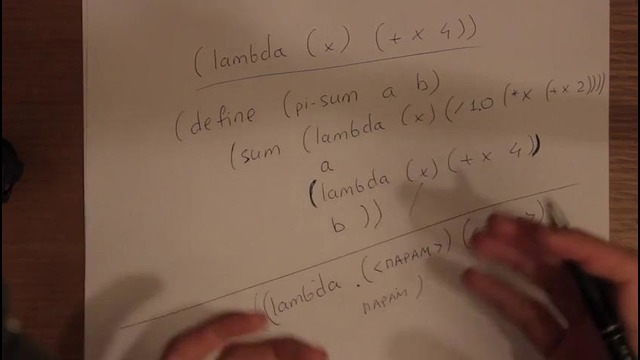 (lambda (x) (+ x 4))
(define (pi-sum a b)
(sum (lambda (x) (/ 1.0 (* x (+ x 2))))
a
(lambda (x) (+ x 4))
b ))
((lambda (<ПАРАМ>) (
ПАРАМ)